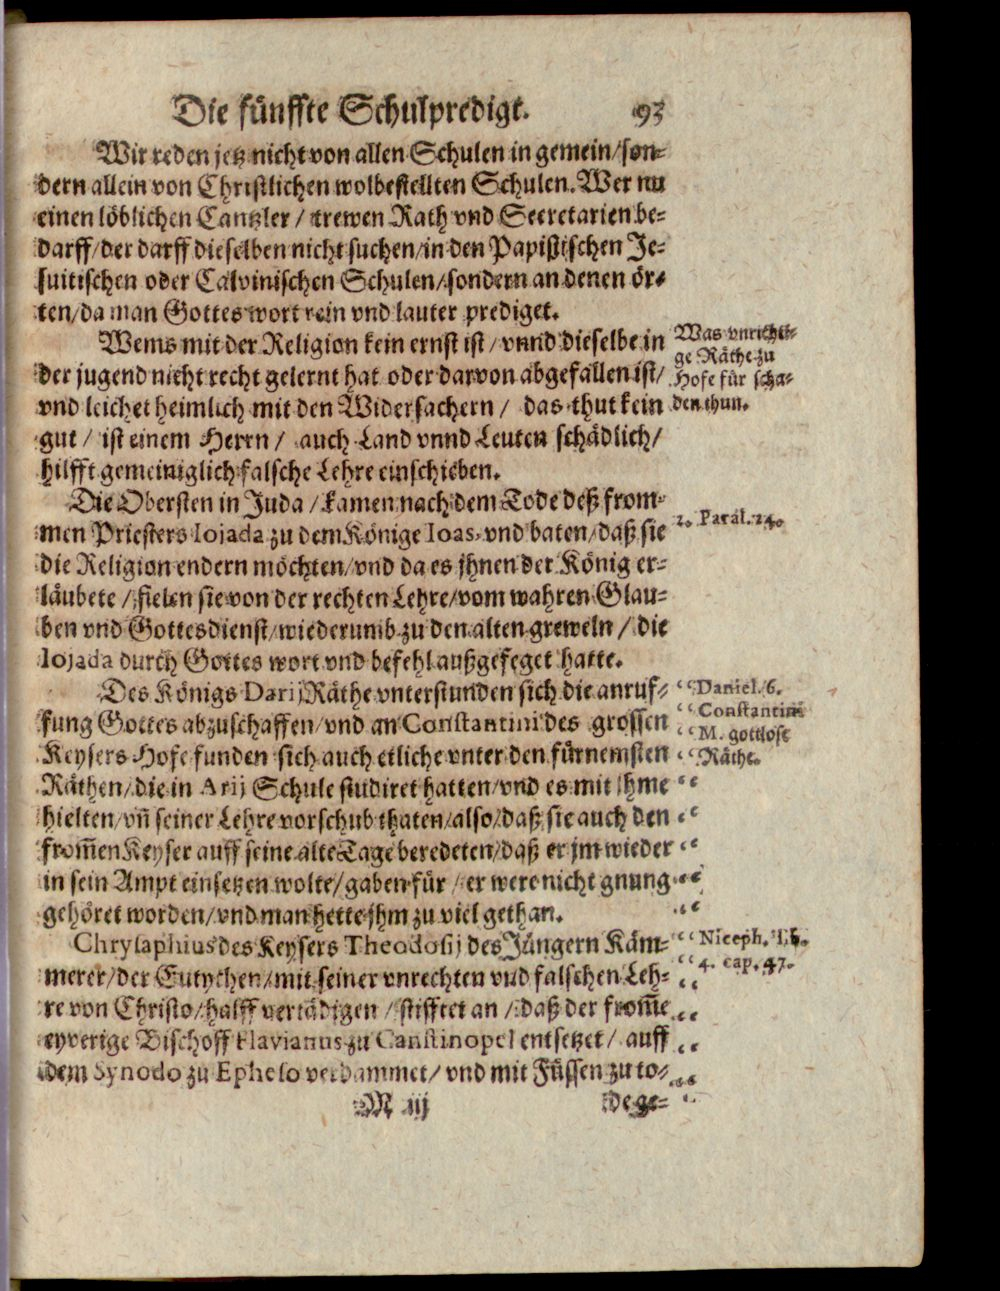 Die fünffte Schulpredigt. 93
Wir reden jetz nicht von allen Schulen in gemein/son-
dern allein von Christlichen wolbestellten Schulen. Wer nu
einen löblichen Cantzler / trewen Rath vnd Secretarien be-
darff/der darff dieselben nicht suchen/in den Papistischen Je-
suitischen oder Calvinischen Schulen/sondern an denen ör-
ten/da man Gottes wort rein vnd lauter prediget.
Wems mit der Religion kein ernst ist/vnnd dieselbe in
der jugend nicht recht gelernt hat oder darvon abgefallen ist/
vnd leichet heimlich mit den Widersachern / das thut kein
gut / ist einem Herrn / auch Land vnnd Leuten schädlich/
hilfft gemeiniglich falsche Lehre einschieben.
Was vnrichti-
ge Räthe zu
Hofe für scha-
den thun.
Die Obersten in Juda / kamen nach dem Tode deß from-
men Priesters Iojada zu dem Könige Ioas, vnd baten/daß sie
die Religion endern möchten/vnd da es jhnen der König er-
läubete / fielen sie von der rechten Lehre/vom wahren Glau-
ben vnd Gottesdienst/wiederumb zu den alten greweln / die
Iojada durch Gottes wort vnd befehl außgefeget hatte.
2. Paral. 24.
Des Königs Darij Räthe vnterstunden sich die anruf-
fung Gottes abzuschaffen/vnd an Constantini des grossen
Keysers Hofe funden sich auch etliche vnter den fürnemsten
Räthen/die in Arij Schule studiret hatten/vnd es mit jhme
hielten/vñ seiner Lehre vorschub thaten/also/daß sie auch den
from̃en Keyser auff seine alte Tage beredeten/daß er jm wieder
in sein Ampt einsetzen wolte/gaben für / er were nicht gnung
gehöret worden/vnd man hette jhm zu viel gethan.
“ Daniel. 6.
“ Constantini
“ M. gottlose
“ Räthe.
Chrysaphius des Keysers Theodosij des Jüngern Käm-
merer/der Eutychen/mit seiner vnrechten vnd falschen Leh-
re von Christo/halff vertädigen / stifftet an / daß der from̃e
eyverige Bischoff Flavianus zu Canstinopel entsetzet / auff
dem Synodo zu Epheso verdammet/ vnd mit Füssen zu to-
“ Niceph. lib.
“ 4. cap. 47.
M iij dege-